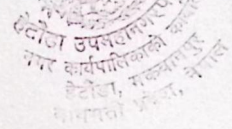 हेटौंडा उपमहानगरपा
नगर कार्यपालिकाको कार्या
हेटौंडा, मकवानपुर
बागमती प्रदेश, नेपाल